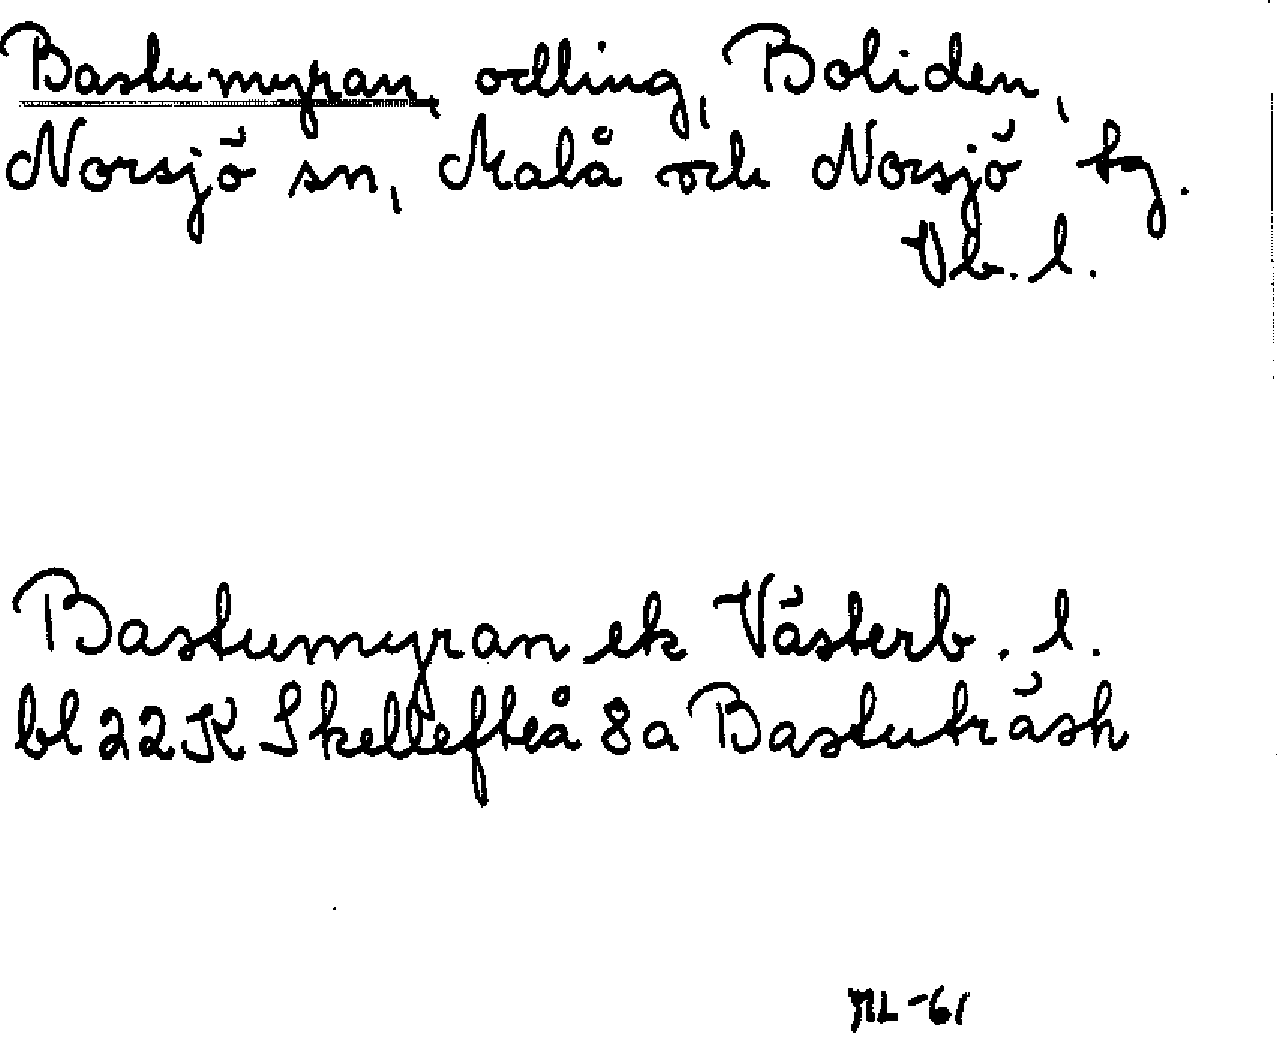 Bastumyran, odling, Boliden,
Norsjö sn, Malå och Norsjö tg.
Vb. l.
Bastumyran ek Västerb. l.
bl 22K Skellefteå 8a Bastuträsk
ML -61